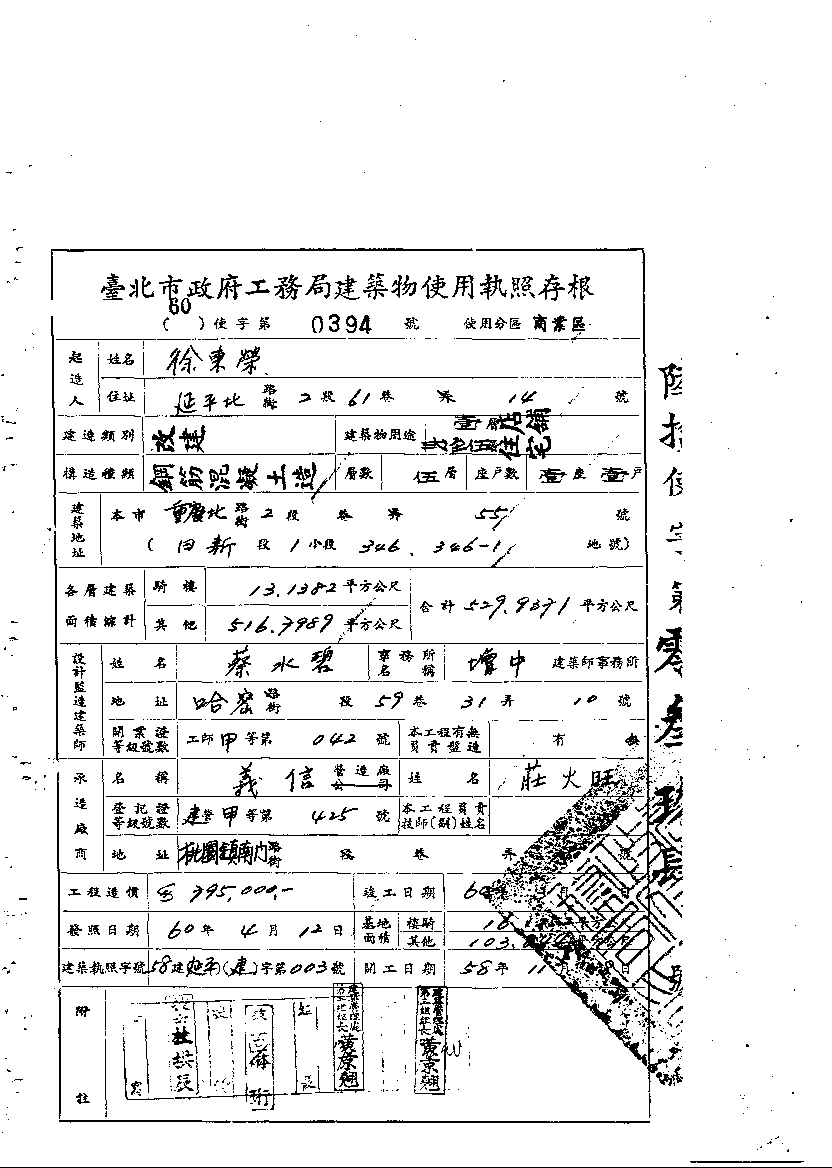 臺北市政府工務局建築物使用執照存根
(60)使字第 0394 號 使用分區 商業區
起造人 姓名 徐東榮
住址 延平北 路街 2 段 61 巷 弄 14 號
建造類別 改建 建築物用途 壹層店舖 住宅
構造種類 鋼筋混凝土造 層數 伍層 座戶數 壹座壹戶
建築地址 本市 重慶北 路街 2 段 巷 弄 55 號
(日新 段 1 小段 346、346-1 地號)
各層建築面積總計 騎樓 13.1382 平方公尺 合計 529.9371 平方公尺
其他 516.7989 平方公尺
設計監造建築師 姓名 蔡水碧 事務所名稱 增中 建築師事務所
地址 哈密 路街 段 59 巷 31 弄 10 號
開業證等級號數 工師甲等第 042 號 本工程有無負責監造 有 無
承造廠商 名稱 義信 營造廠公司 姓名 莊火旺
登記證等級號數 建營甲等第 425 號 本工程負責技師(副)姓名
地址 桃園鎮南門 路街 段 巷 弄 號
工程造價 795,000,- 竣工日期 60年 月 日
發照日期 60年 4月 12日 基地面積 騎樓 平方公尺
其他 103. 平方公尺
建築執照字號 58建延平(建)字第003號 開工日期 58年 11月 日
附註
建築管理處
黃京翹
建築管理處
第二組組長
黃京翹
陸拾使字第零叁玖肆號